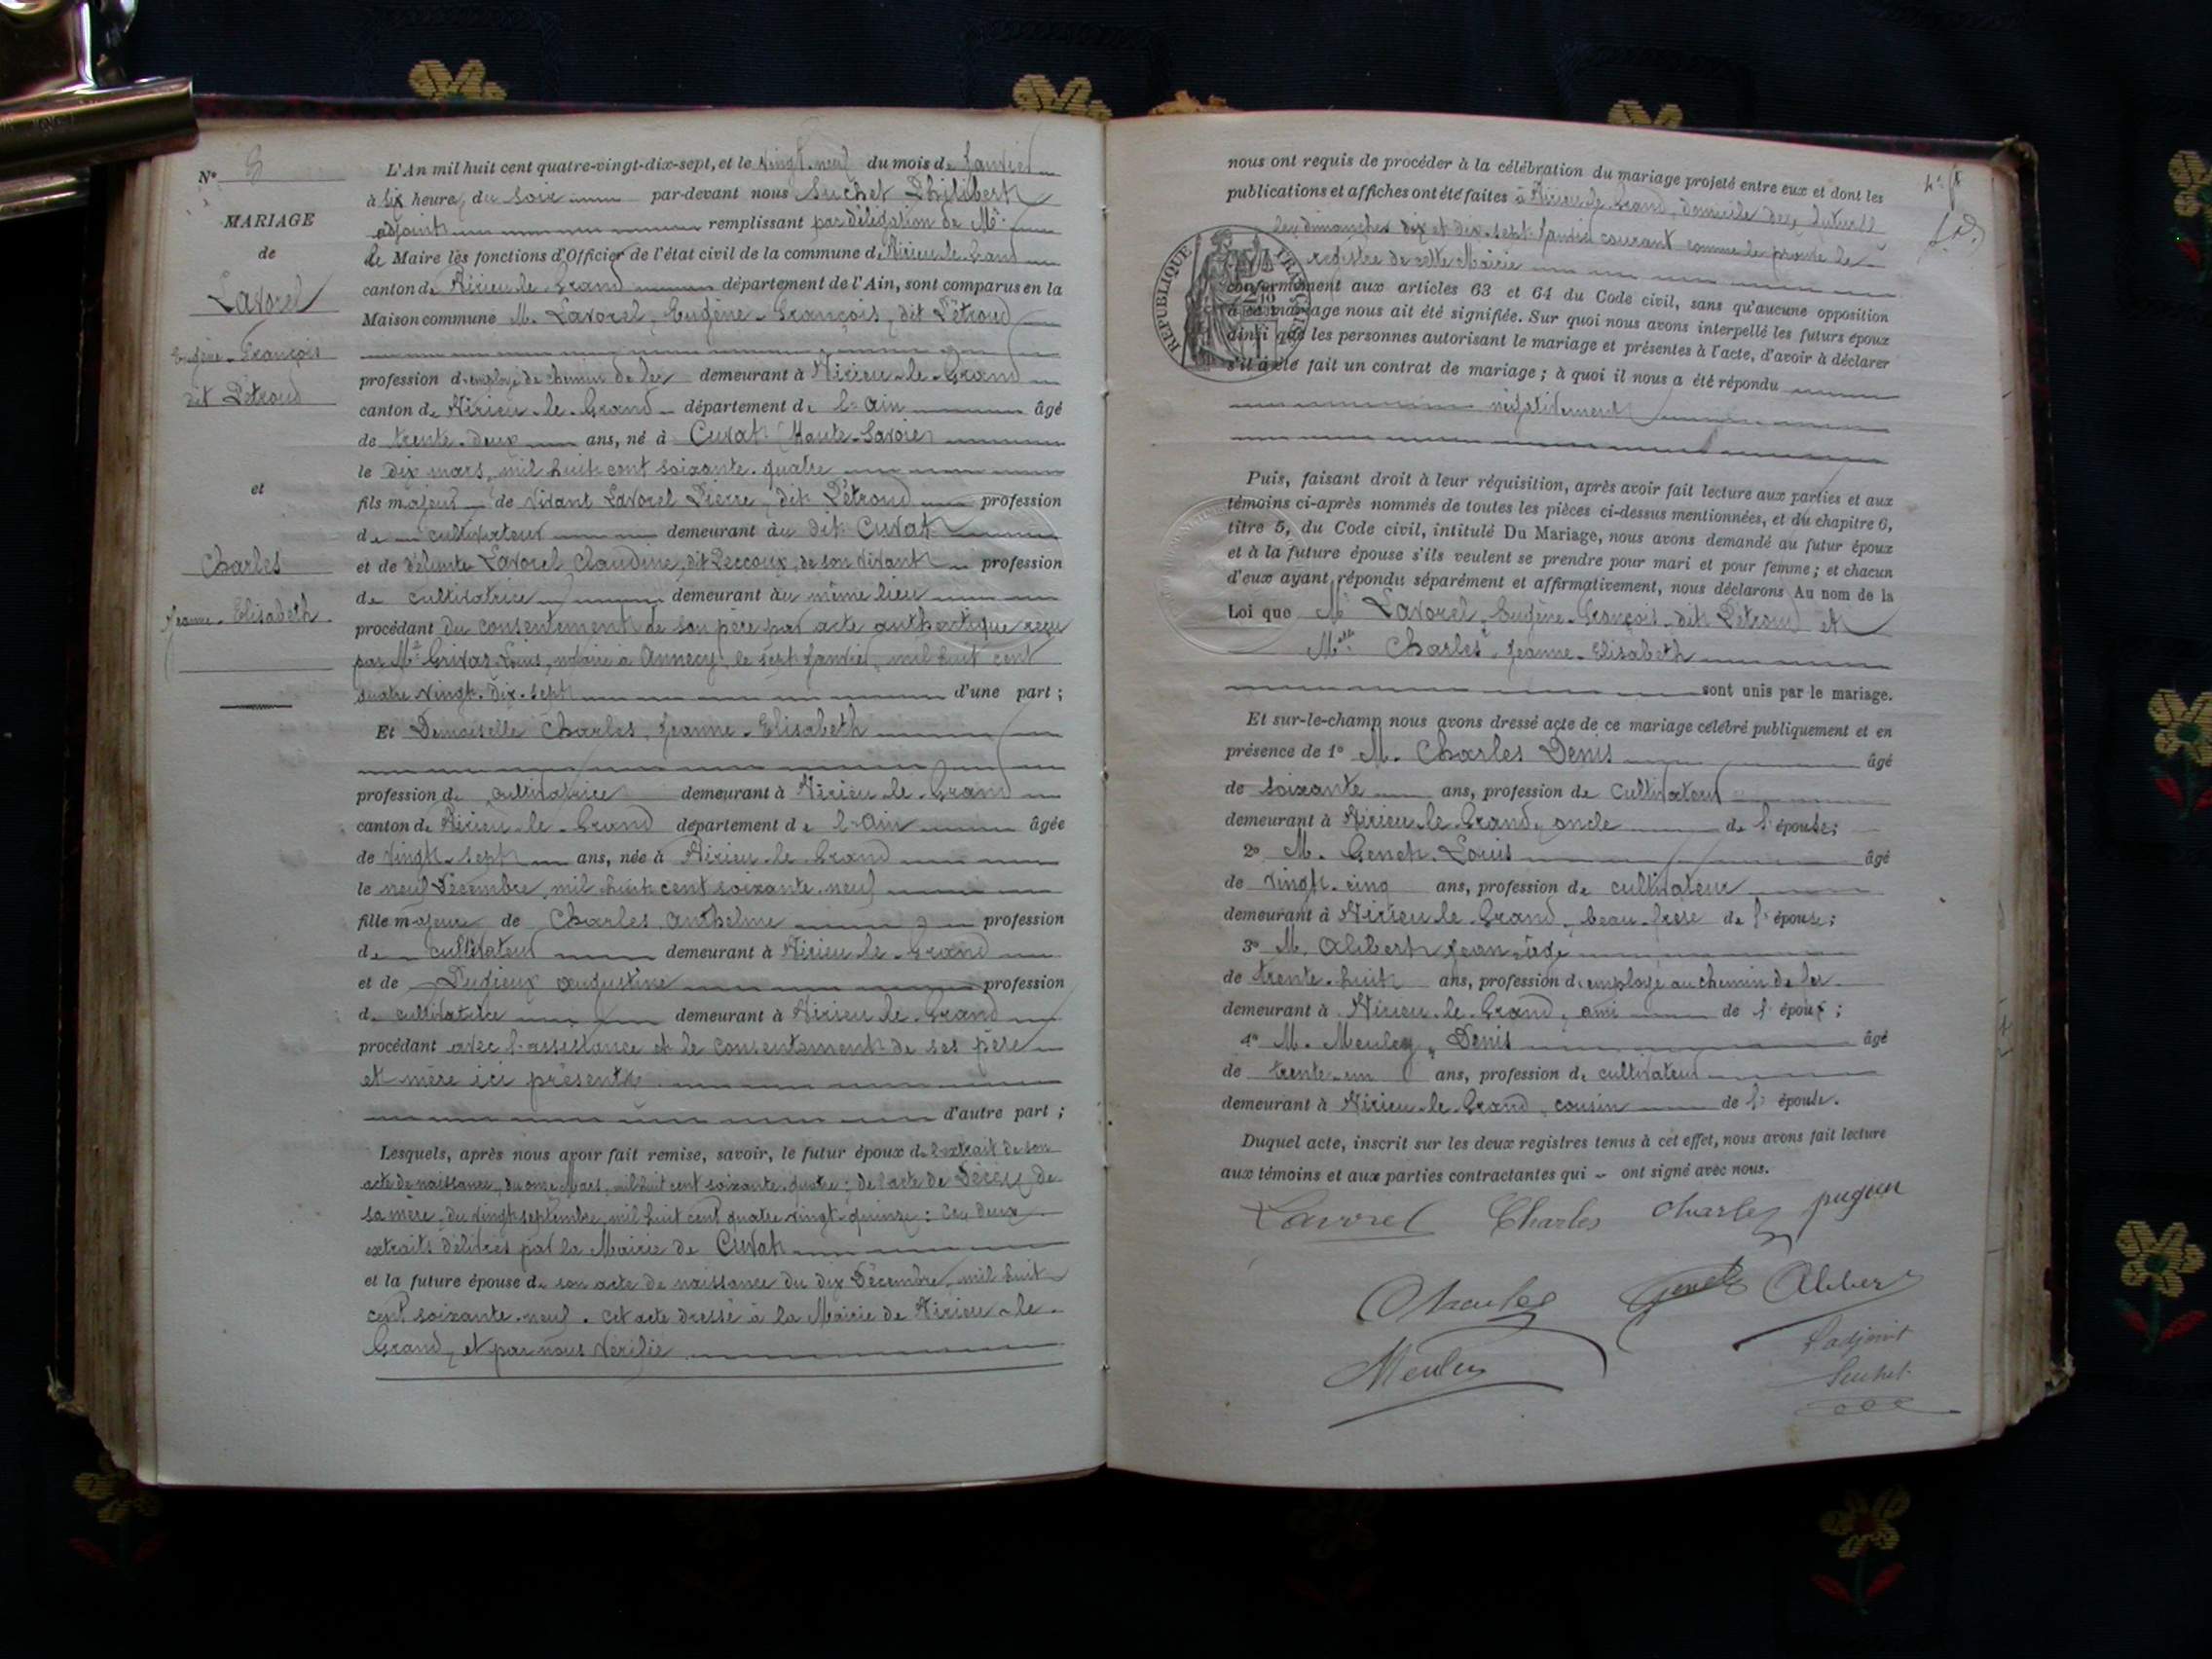 N° 8
MARIAGE
de
Lavorel
Eugène-François
dit Pétroud
et
Charles
Jeanne-Elisabeth
L'An mil huit cent quatre-vingt-dix-sept, et le vingt-neuf du mois de Janvier
à six heures du soir par-devant nous Suchet Philibert
adjoint remplissant par délégation de Mr
le Maire les fonctions d'Officier de l'état civil de la commune de Virieu-le-Grand
canton de Virieu-le-Grand département de l'Ain, sont comparus en la
Maison commune M. Lavorel, Eugène-François, dit Pétroud
profession d'employé de chemin de fer demeurant à Virieu-le-Grand
canton de Virieu-le-Grand département de l'Ain âgé
de trente-deux ans, né à Cuvat (Haute-Savoie)
le dix mars, mil huit cent soixante-quatre
fils majeur de vivant Lavorel Pierre, dit Pétroud profession
de cultivateur demeurant au dit Cuvat
et de défunte Lavorel Claudine, dit Peccoux, de son vivant profession
de cultivatrice demeurant au même lieu
procédant du consentement de son père par acte authentique reçu
par Me Grivaz Louis, notaire à Annecy, le sept Janvier, mil huit cent
quatre vingt-dix-sept d'une part ;
Et Demoiselle Charles, Jeanne-Elisabeth
profession de cultivatrice demeurant à Virieu-le-Grand
canton de Virieu-le-Grand département de l'Ain âgée
de vingt-sept ans, née à Virieu-le-Grand
le neuf Décembre, mil huit cent soixante-neuf
fille majeure de Charles Anthelme profession
de cultivateur demeurant à Virieu-le-Grand
et de Pugieux Augustine profession
de cultivatrice demeurant à Virieu-le-Grand
procédant avec l'assistance et le consentement de ses père
et mère ici présents
d'autre part ;
Lesquels, après nous avoir fait remise, savoir, le futur époux de l'extrait de son
acte de naissance, du onze Mars, mil huit cent soixante-quatre ; de l'acte de Décès de
sa mère, du vingt septembre, mil huit cent quatre vingt-quinze : Ces deux
extraits délivrés par la Mairie de Cuvat
et la future épouse de son acte de naissance du dix Décembre, mil huit
cent soixante-neuf. Cet acte dressé à la Mairie de Virieu-le-
Grand, et par nous vérifié
nous ont requis de procéder à la célébration du mariage projeté entre eux et dont les
publications et affiches ont été faites à Virieu-le-Grand, domicile des futurs
les dimanches dix et dix-sept Janvier courant comme le prouve le
registre de cette Mairie
conformément aux articles 63 et 64 du Code civil, sans qu'aucune opposition
à ce mariage nous ait été signifiée. Sur quoi nous avons interpellé les futurs époux
ainsi que les personnes autorisant le mariage et présentes à l'acte, d'avoir à déclarer
s'il a été fait un contrat de mariage ; à quoi il nous a été répondu
négativement
Puis, faisant droit à leur réquisition, après avoir fait lecture aux parties et aux
témoins ci-après nommés de toutes les pièces ci-dessus mentionnées, et du chapitre 6,
titre 5, du Code civil, intitulé Du Mariage, nous avons demandé au futur époux
et à la future épouse s'ils veulent se prendre pour mari et pour femme ; et chacun
d'eux ayant répondu séparément et affirmativement, nous déclarons Au nom de la
Loi que Mr Lavorel, Eugène-François, dit Pétroud et
Melle Charles, Jeanne-Elisabeth
sont unis par le mariage.
Et sur-le-champ nous avons dressé acte de ce mariage célébré publiquement et en
présence de 1° M. Charles Denis âgé
de soixante ans, profession de cultivateur
demeurant à Virieu-le-Grand, oncle de l'épouse ;
2° M. Genet Louis âgé
de vingt-cinq ans, profession de cultivateur
demeurant à Virieu-le-Grand, beau-frère de l'épouse ;
3° M. Alibert Jean âgé
de trente-huit ans, profession d'employé au chemin de fer
demeurant à Virieu-le-Grand, ami de l'époux ;
4° M. Meuley, Denis âgé
de trente-un ans, profession de cultivateur
demeurant à Virieu-le-Grand, cousin de l'épouse.
Duquel acte, inscrit sur les deux registres tenus à cet effet, nous avons fait lecture
aux témoins et aux parties contractantes qui ont signé avec nous.
Lavorel Charles Charles
Charles Genet Alibert
Meuley
L'adjoint
Suchet
RÉPUBLIQUE